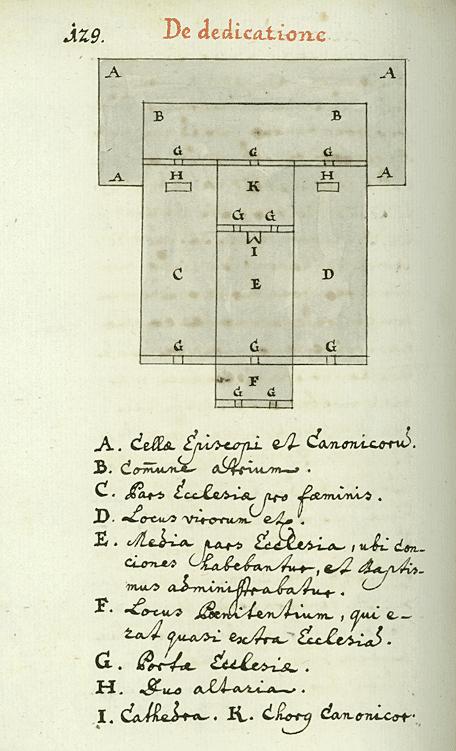 129. De dedicatione
A A
B B
G G G
A H K H A
G G
I
C E D
G G G
F
G G
A. Cellæ Episcopi et Canonicorũ.
B. Com̃une atrium.
C. Pars Ecclesiæ pro fæminis.
D. Locus virorum
E. Media pars Ecclesiæ, ubi con-
ciones habebantur, et Baptis-
mus administrabatur.
F. Locus Pœnitentium, qui e-
rat quasi extra Ecclesiã.
G. Portæ Ecclesiæ.
H. Duo altaria.
I. Cathedra. K. Chorq Canonicor.